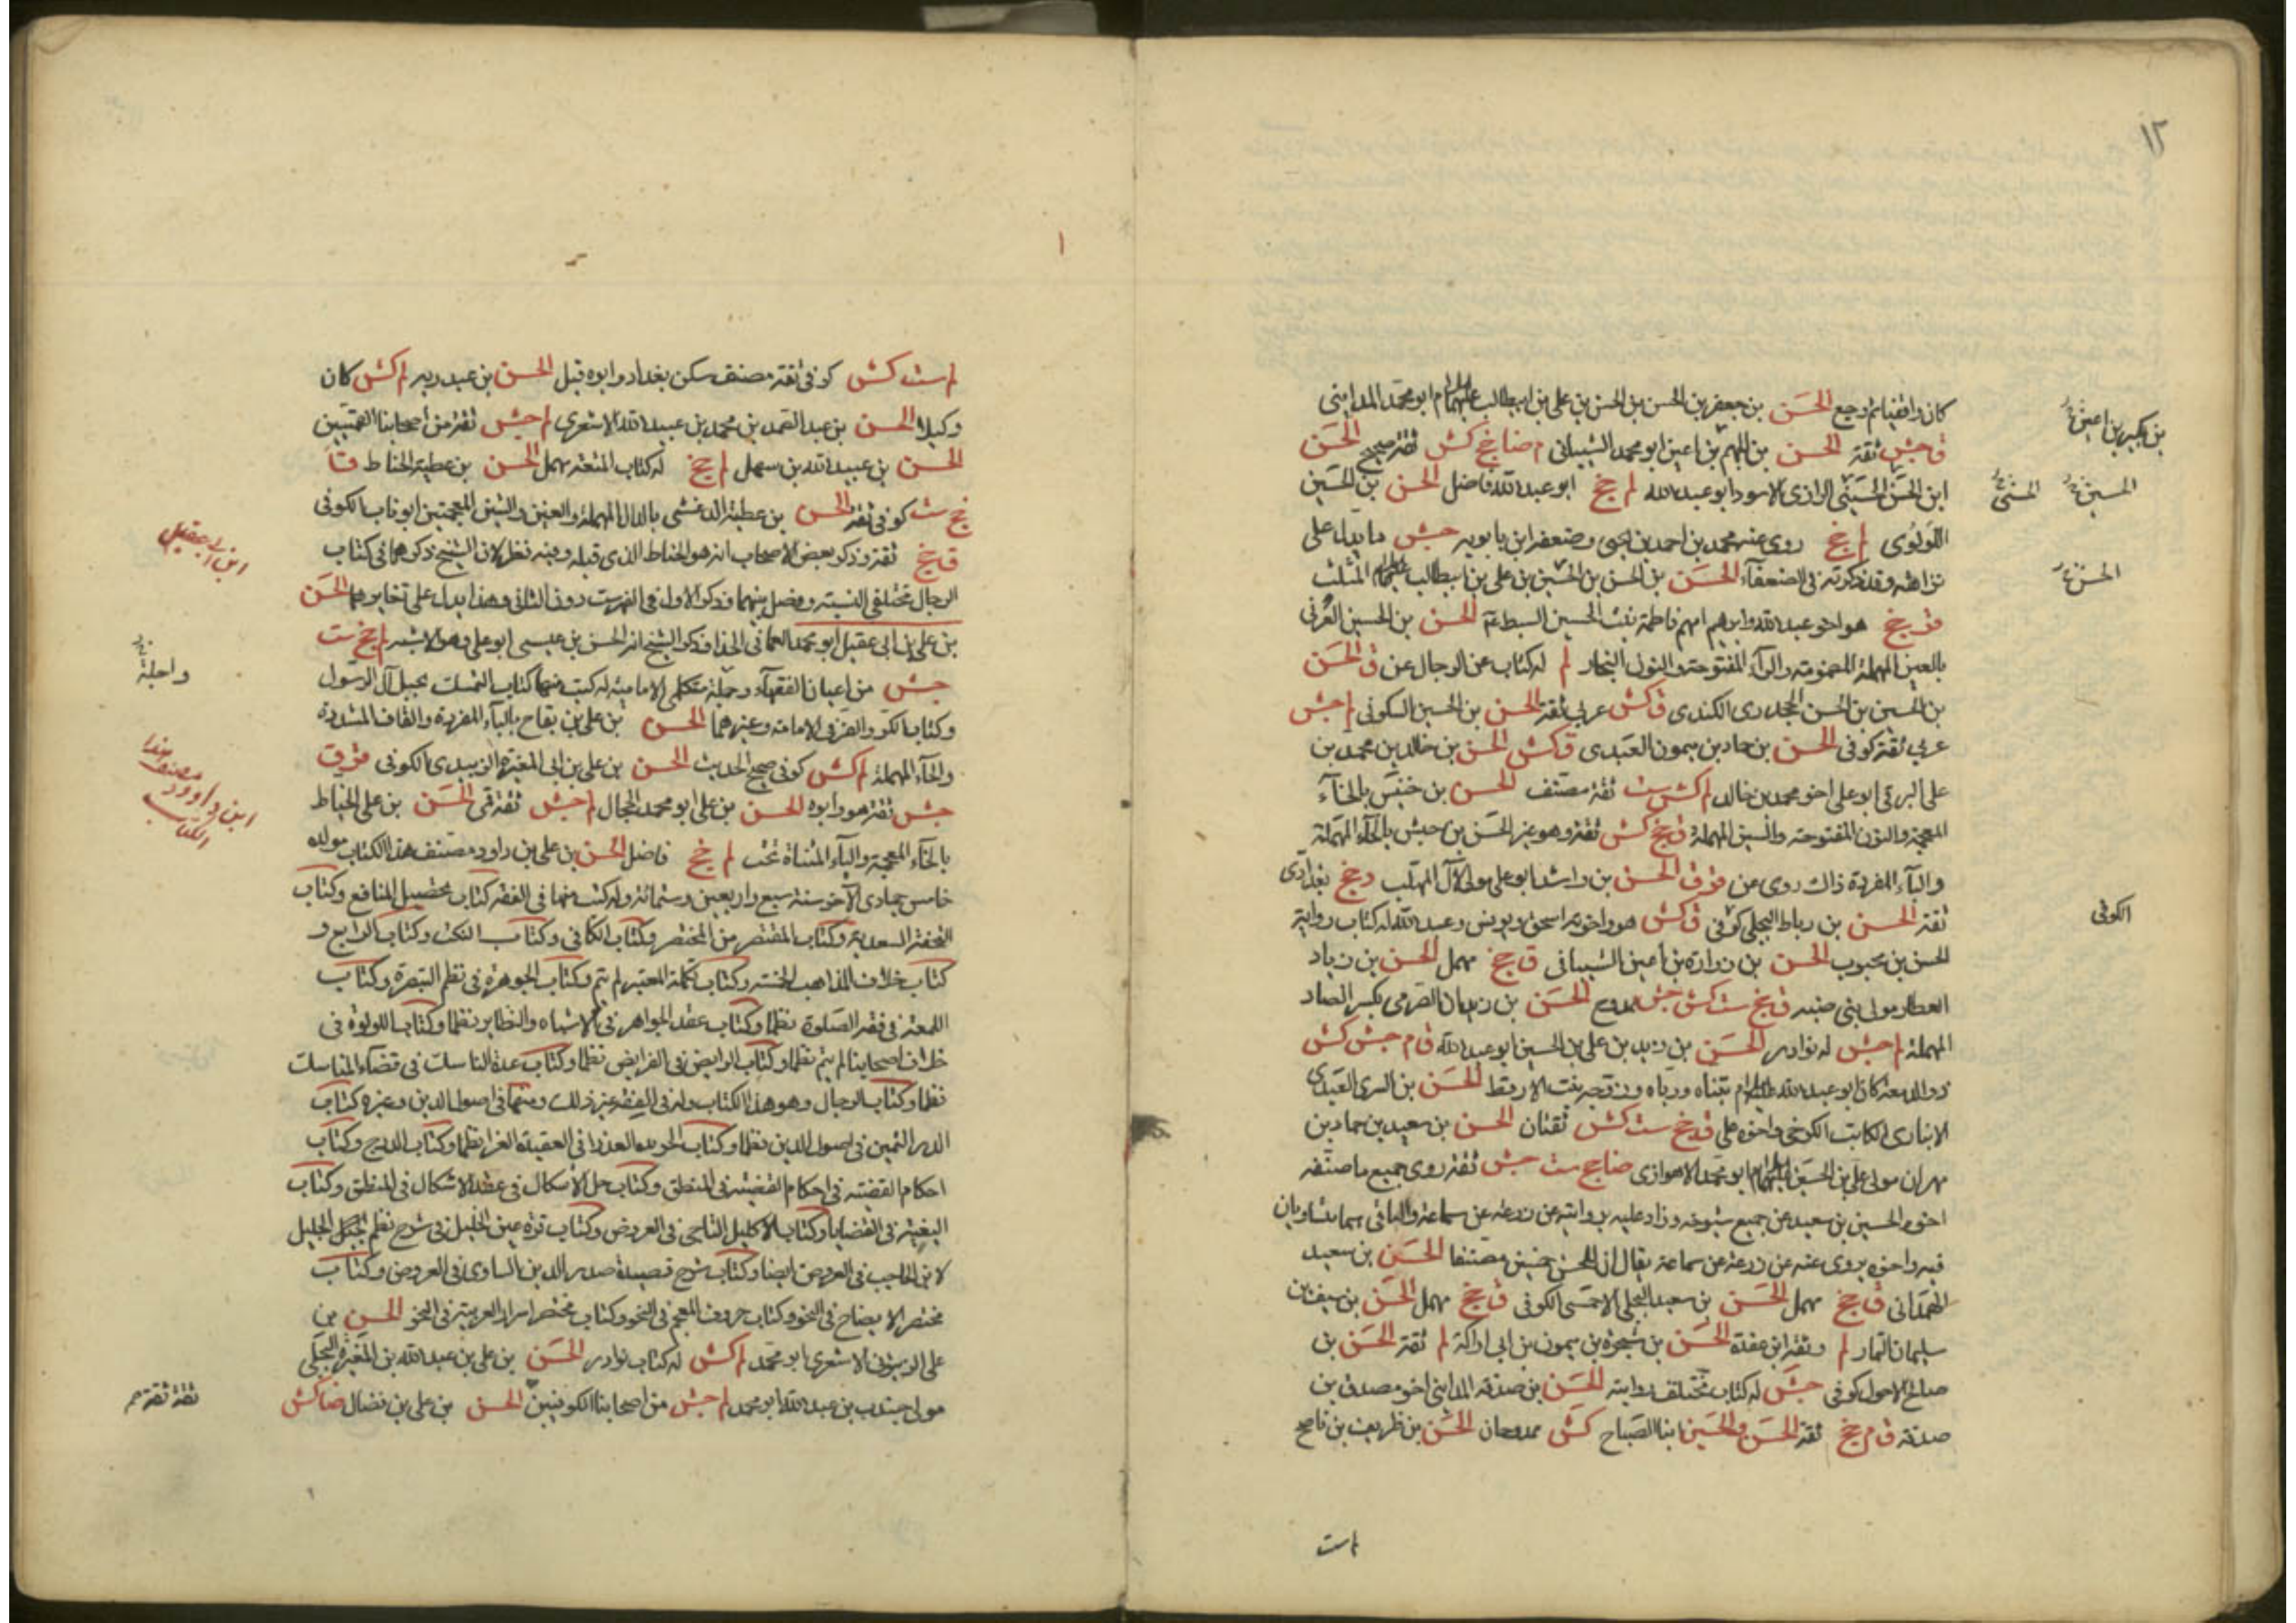 ١٢
كان واقفيا ثم رجع الحسن بن جعفر بن الحسن بن الحسن بن علي بن ابيطالب عليهم السلام ابو محمد المدايني
ق جش ثقة الحسن بن الجهم بن اعين ابو محمد الشيباني م ضا جخ كش ثقة صحيح الحسن
بن بكير بن اعين
ابن الحسن الحسيني الرازي الاسود ابو عبد الله لم جخ ابو عبد الله فاضل الحسن بن الحسين
الحسين
المثنى
اللؤلؤى لم جخ روى عنه محمد بن احمد بن يحيى وضعفه ابن بابويه جش ما يدل على
نزاهته وقد ذكرته في الضعفاء الحسن بن الحسن بن الحسين بن علي بن ابيطالب عليهم السلام المثلث
الحسن
قر جخ هو اخو عبد الله وابرهيم امهم فاطمة بنت الحسين السبط عم الحسن بن الحسين العرني
بالعين المهملة المضمومة والراء المفتوحة والنون النجار لم له كتاب عن الرجال عن ق الحسن
بن الحسين بن الحسن الجحدرى الكندى ق كش عربي ثقة الحسن بن الحسين السكوني لم جش
عربي ثقة كوفي الحسن بن حماد بن ميمون العبدى ق كش الحسن بن خالد بن محمد بن
علي البرقي ابو علي اخو محمد بن خالد لم كش ست ثقة مصنف الحسن بن خنيس بالخاء
المعجمة والنون المفتوحة والسين المهملة ق جخ كش ثقة وهو غير الحسن بن حبش بالحاء المهملة
والباء المفردة ذاك روى عن قر ق الحسن بن راشد ابو علي مولى لآل المهلب د جخ بغدادى
ثقة الحسن بن رباط البجلي كوفي ق كش هو واخوته اسحق ويونس وعبد الله له كتاب رواية
الكوفي
الحسن بن محبوب الحسن بن زرارة بن اعين الشيباني ق جخ مهمل الحسن بن زياد
العطار مولى بني ضبه ق جخ ست كش جش ممدوح الحسن بن زيدان الصرمي بكسر الصاد
المهملة لم جش له نوادر الحسن بن زيد بن علي بن الحسين ابو عبد الله ق م جش كش
ذو الدمعة كان ابو عبد الله عليه السلام تبناه ورباه وزوجه بنت الارقط الحسن بن السرى العبدى
الانبارى الكاتب الكرخي واخوه علي ق جخ ست كش ثقتان الحسن بن سعيد بن حماد بن
مهران مولى علي بن الحسين عليهما السلام ابو محمد الاهوازى ضا جخ ست جش ثقة روى جميع ما صنفه
اخوه الحسين بن سعيد عن جميع شيوخه وزاد عليه بروايته عن زرعة عن سماعة والباقي هما يتساويان
فيه واخوه يروى عنه عن زرعة عن سماعة يقال ان للحسن خمسين مصنفا الحسن بن سعيد
الهمداني ق جخ مهمل الحسن بن سعيد البجلي الاحمسى الكوفي ق جخ مهمل الحسن بن سيف بن
سليمان التمار لم وثقه ابن عقدة الحسن بن شجرة بن ميمون بن ابي اراكة لم ثقة الحسن بن
صالح الاحول كوفي جش له كتاب تختلف روايته الحسن بن صدقة المدايني اخو مصدق بن
صدقة ق م جخ ثقة الحسن والحسين ابنا الصباح كش ممدوحان الحسن بن ظريف بن ناصح
لم ست
لم ست كش كوفي ثقة مصنف سكن بغداد وابوه قبل الحسن بن عبد ربه لم كش كان
وكيلا الحسن بن عبد الصمد بن محمد بن عبيد الله الاشعرى لم جش ثقة من اصحابنا القميين
الحسن بن عبيد الله بن سهل لم جخ له كتاب المتعة مهمل الحسن بن عطية الحناط ق
جخ ست كوفي ثقة الحسن بن عطية الدغشى بالدال المهملة والغين والشين المعجمتين ابو ناب الكوفي
ق جخ ثقة وذكر بعض الاصحاب انه هو الحناط الذى قبله وفيه نظر لان الشيخ ذكرهما في كتاب
ابن ابي عقيل
الرجال مختلفي النسبة وفصل بينهما وذكر الاول في الفهرست دون الثاني وهذا يدل على تغايرهما الحسن
بن علي بن ابي عقيل ابو محمد العماني الحذا وذكر الشيخ انه الحسن بن عيسى ابو علي وهو الاشبه لم جخ ست
جش من اعيان الفقهاء وجملة متكلمي الامامية له كتب منها كتاب التمسك بحبل آل الرسول
واجلة
وكتاب الكر والفر في الامامة وغيرهما الحسن بن علي بن بقاح بالباء المفردة والقاف المشددة
والحاء المهملة لم كش كوفي صحيح الحديث الحسن بن علي بن ابي المغيرة الزبيدى الكوفي قر ق
جش ثقة هو وابوه الحسن بن علي ابو محمد الحجال لم جش ثقة قمي الحسن بن علي الخياط
ابن داوود مصنف هذا الكتاب
بالخاء المعجمة والياء المثناة تحت لم جخ فاضل الحسن بن علي بن داود مصنف هذا الكتاب مولده
خامس جمادى الآخر سنة سبع واربعين وستمائة وله كتب منها في الفقه كتاب تحصيل المنافع وكتاب
التحفة السعدية وكتاب المقتصر من المختصر وكتاب الكافي وكتاب النكت وكتاب الرايع و
كتاب خلاف المذاهب الخمسة وكتاب تكملة المعتبر لم يتم وكتاب الجوهرة في نظم التبصرة وكتاب
اللمعة في فقه الصلوة نظما وكتاب عقد الجواهر في الاشباه والنظاير نظما وكتاب اللؤلؤة في
خلاف اصحابنا لم يتم نظما وكتاب الرايض في الفرايض نظما وكتاب عدة الناسك في قضاء المناسك
نظما وكتاب الرجال وهو هذا الكتاب وله في الفقه غير ذلك ومنها في اصول الدين وغيره كتاب
الدر الثمين في اصول الدين نظما وكتاب الخريدة العذرا في العقيدة الغرا نظما وكتاب الدرج وكتاب
احكام القضية في احكام القضية في المنطق وكتاب حل الاشكال في عقد الاشكال في المنطق وكتاب
البغية في القضايا وكتاب الاكليل التاجي في العروض وكتاب قرة عين الخليل في شرح نظم الجليل
لابن الحاجب في العروض ايضا وكتاب شرح قصيدة صدر الدين الساوى في العروض وكتاب
مختصر الايضاح في النحو وكتاب حروف المعجم في النحو وكتاب مختصر اسرار العربية في النحو الحسن بن
علي الزيتوني الاشعرى ابو محمد لم كش له كتاب نوادر الحسن بن علي بن عبد الله بن المغيرة البجلي
مولى جندب بن عبد الله ابو محمد لم جش من اصحابنا الكوفيين الحسن بن علي بن فضال ضا كش
ثقة ثقة